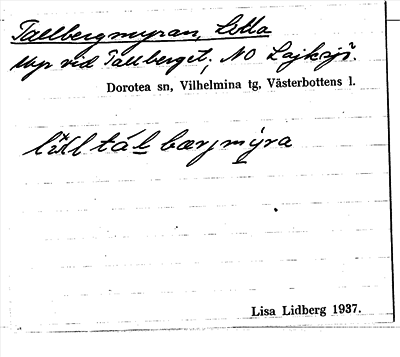 Tallbergmyran, Lilla
Myr vid Tallberget, NO Lajksjö.
Dorotea sn, Vilhelmina tg, Västerbottens l.
bærjmýra
Lisa Lidberg 1937.